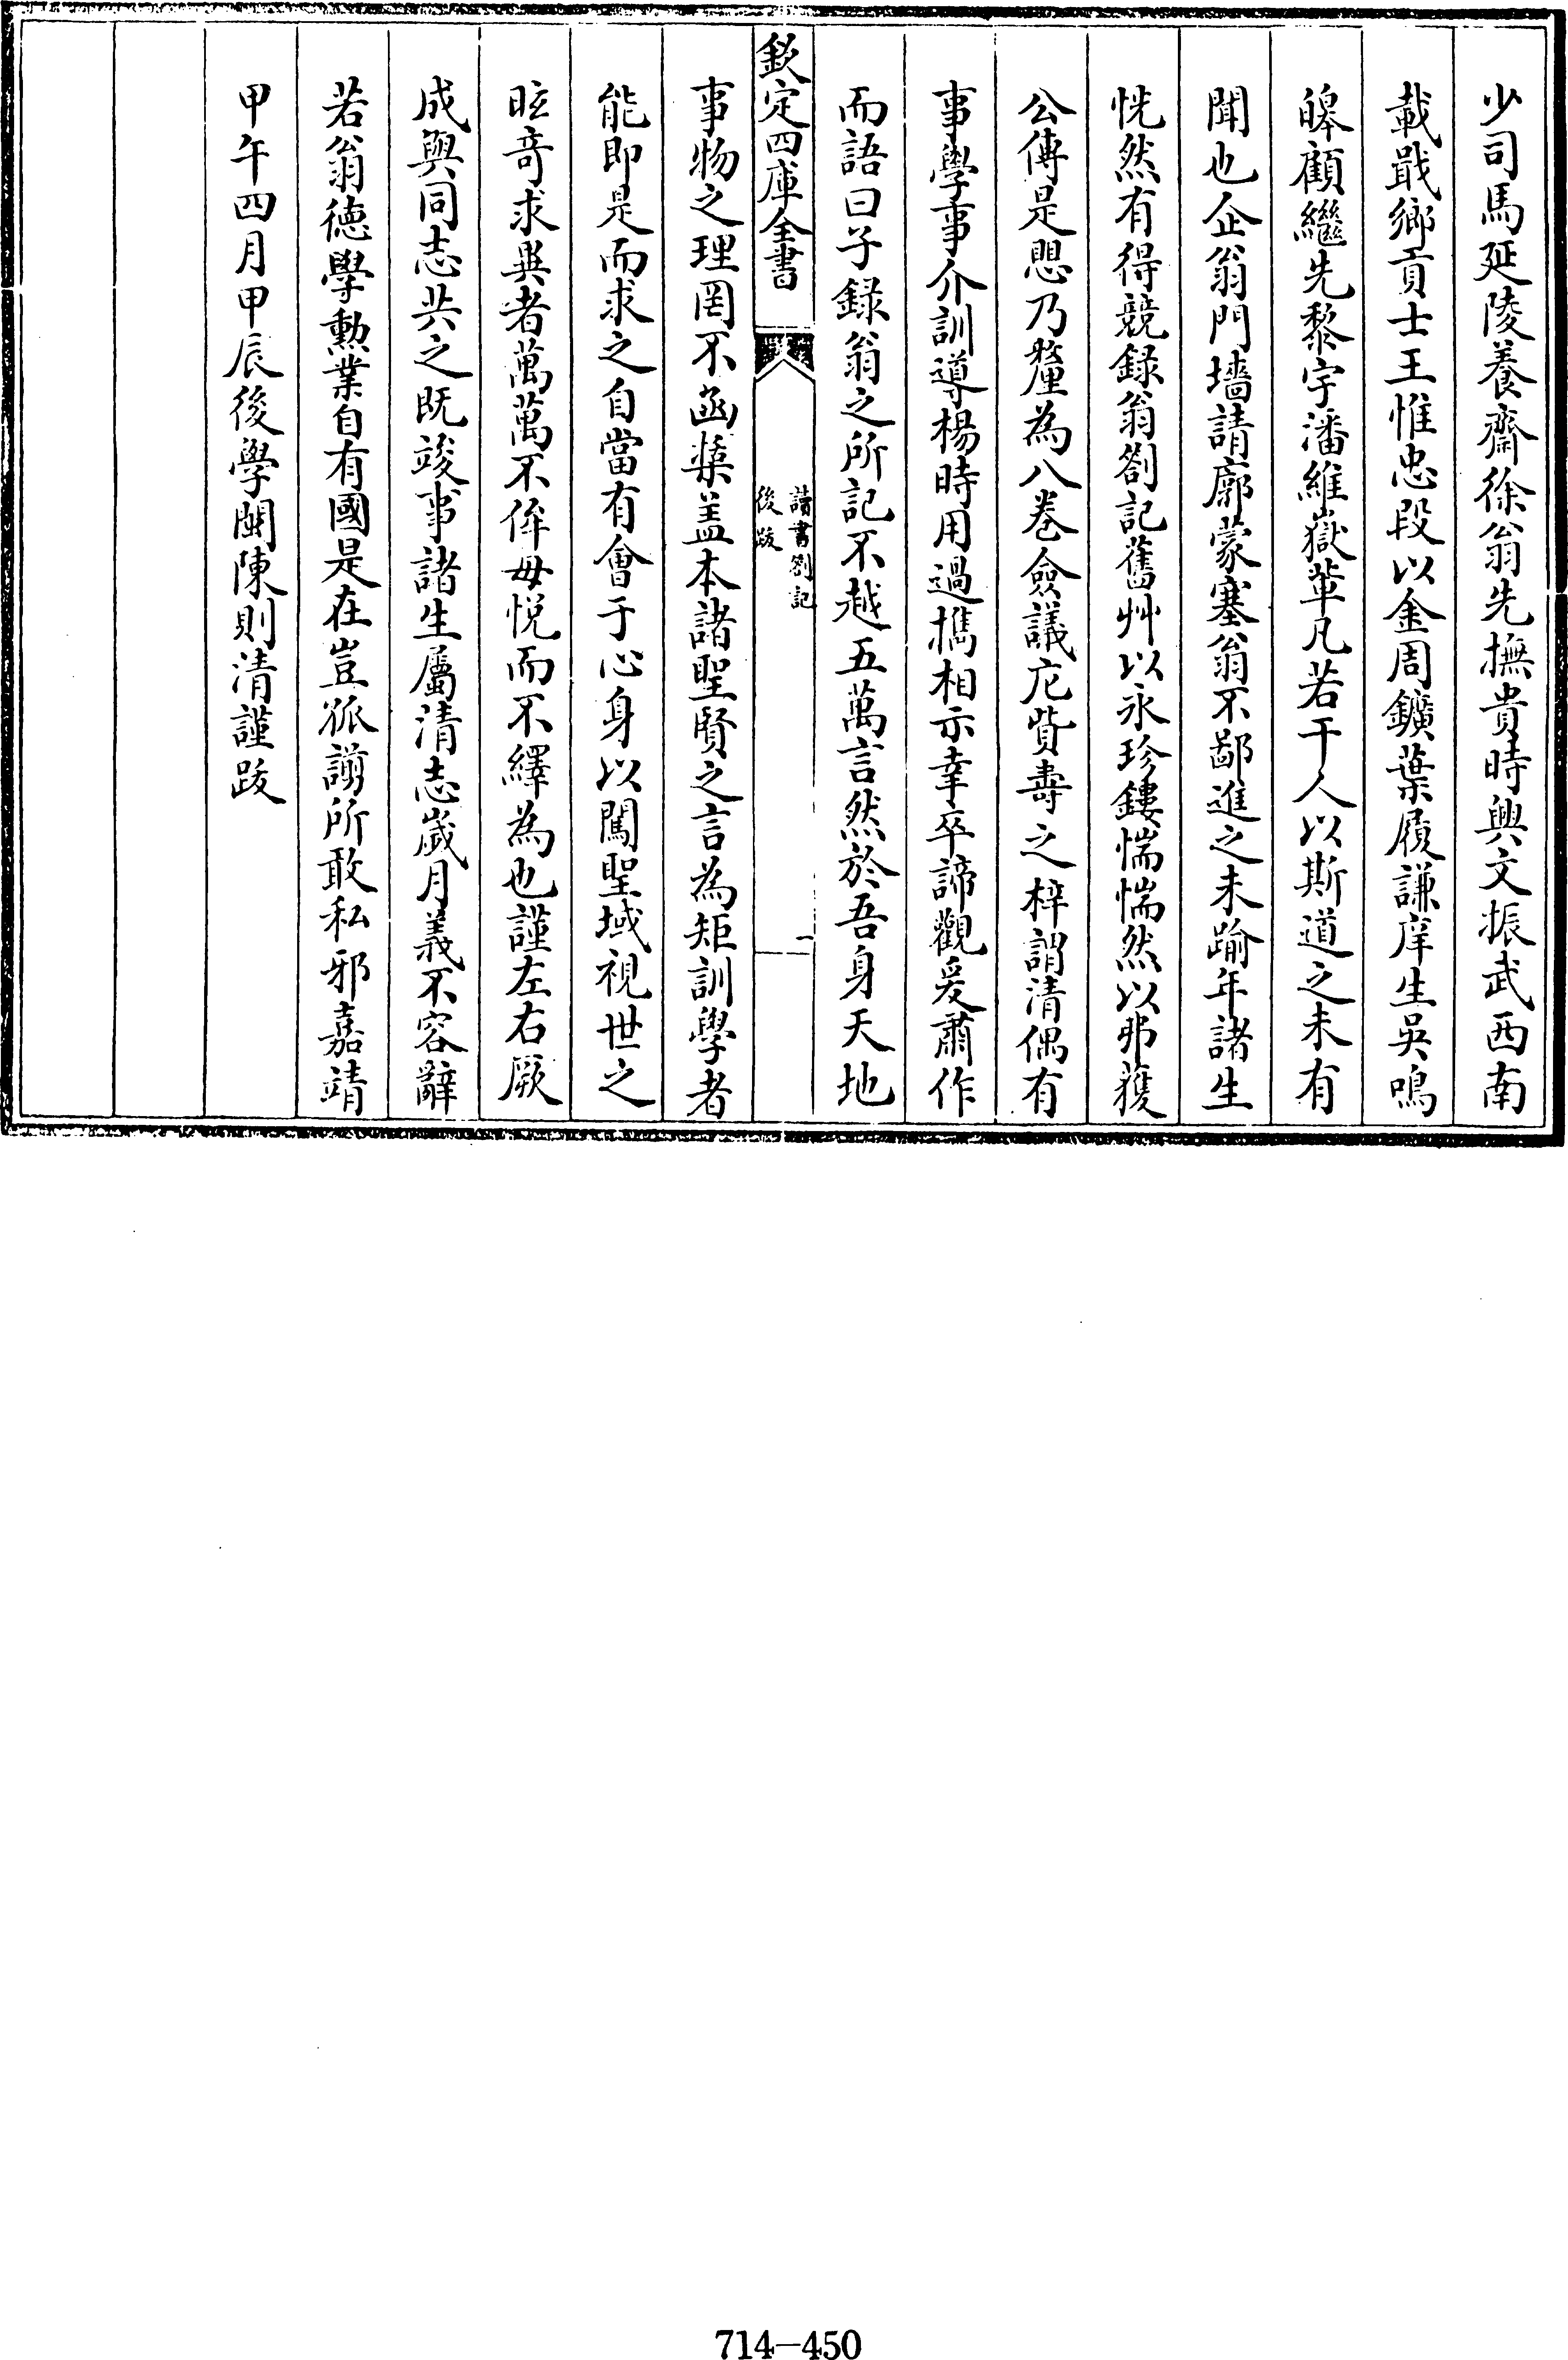 少司馬延陵養齋徐翁先撫貴時興文振武西南
載戢鄉貢士王惟忠段以金周鑛葉履謙庠生吳鳴
皞顧繼先黎宇潘維嶽輩凡若干人以斯道之未有
聞也企翁門墻請廓蒙塞翁不鄙進之未踰年諸生
恍然有得競録翁劄記舊艸以永珍鏤惴惴然以弗獲
公傳是恩乃釐為八卷僉議庀貲壽之梓謂清偶有
事學事介訓導楊時用過攜相示幸卒諦觀爰肅作
而語曰子録翁之所記不越五萬言然於吾身天地
欽定四庫全書
讀書劄記
後跋
一
事物之理罔不函槩盖本諸聖賢之言為矩訓學者
能即是而求之自當有會于心身以闖聖域視世之
眩竒求異者萬萬不侔毋悦而不繹為也謹左右厥
成與同志共之既竣事諸生屬清志嵗月義不容辭
若翁徳學勳業自有國是在豈狐謭所敢私邪嘉靖
甲午四月甲辰後學閩陳則清謹跋
714-450